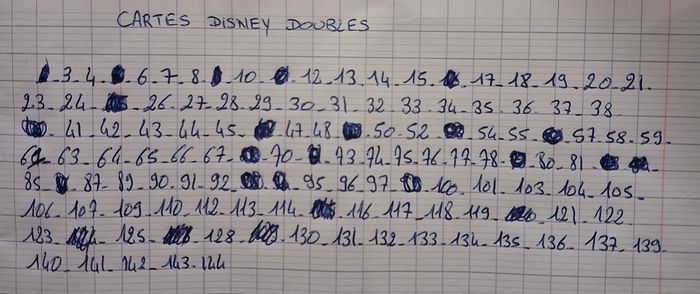 CARTES DISNEY DOUBLES
3_4_ 6_7_8_ 10_ 12_13_14_15_ 17_18_19_20_21_
23_24_ 26_27_28_29_30_31_32_33_34_35_36_37_38_
41_42_43_44_45_ 47_48_ 50_52_ 54_55_ 57_58_59_
63_64_65_66_67_ 70_ 73_74_75_76_77_78_ 80_81_
85_ 87_89_90_91_92_ 95_96_97_ 100_101_103_104_105_
106_107_109_110_112_113_114_ 116_117_118_119_ 121_122_
123_ 125_ 128_ 130_131_132_133_134_135_136_137_139_
140_141_142_143_144